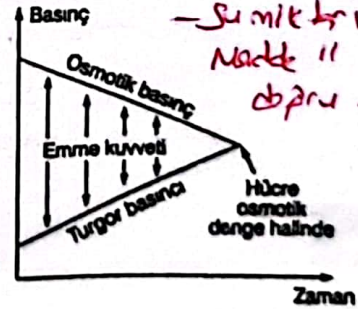 Basınç
- Su miktarı
Madde "
doğru
Osmotik basınç
Emme kuvveti
Turgor basıncı
Hücre
osmotik
denge halinde
Zaman